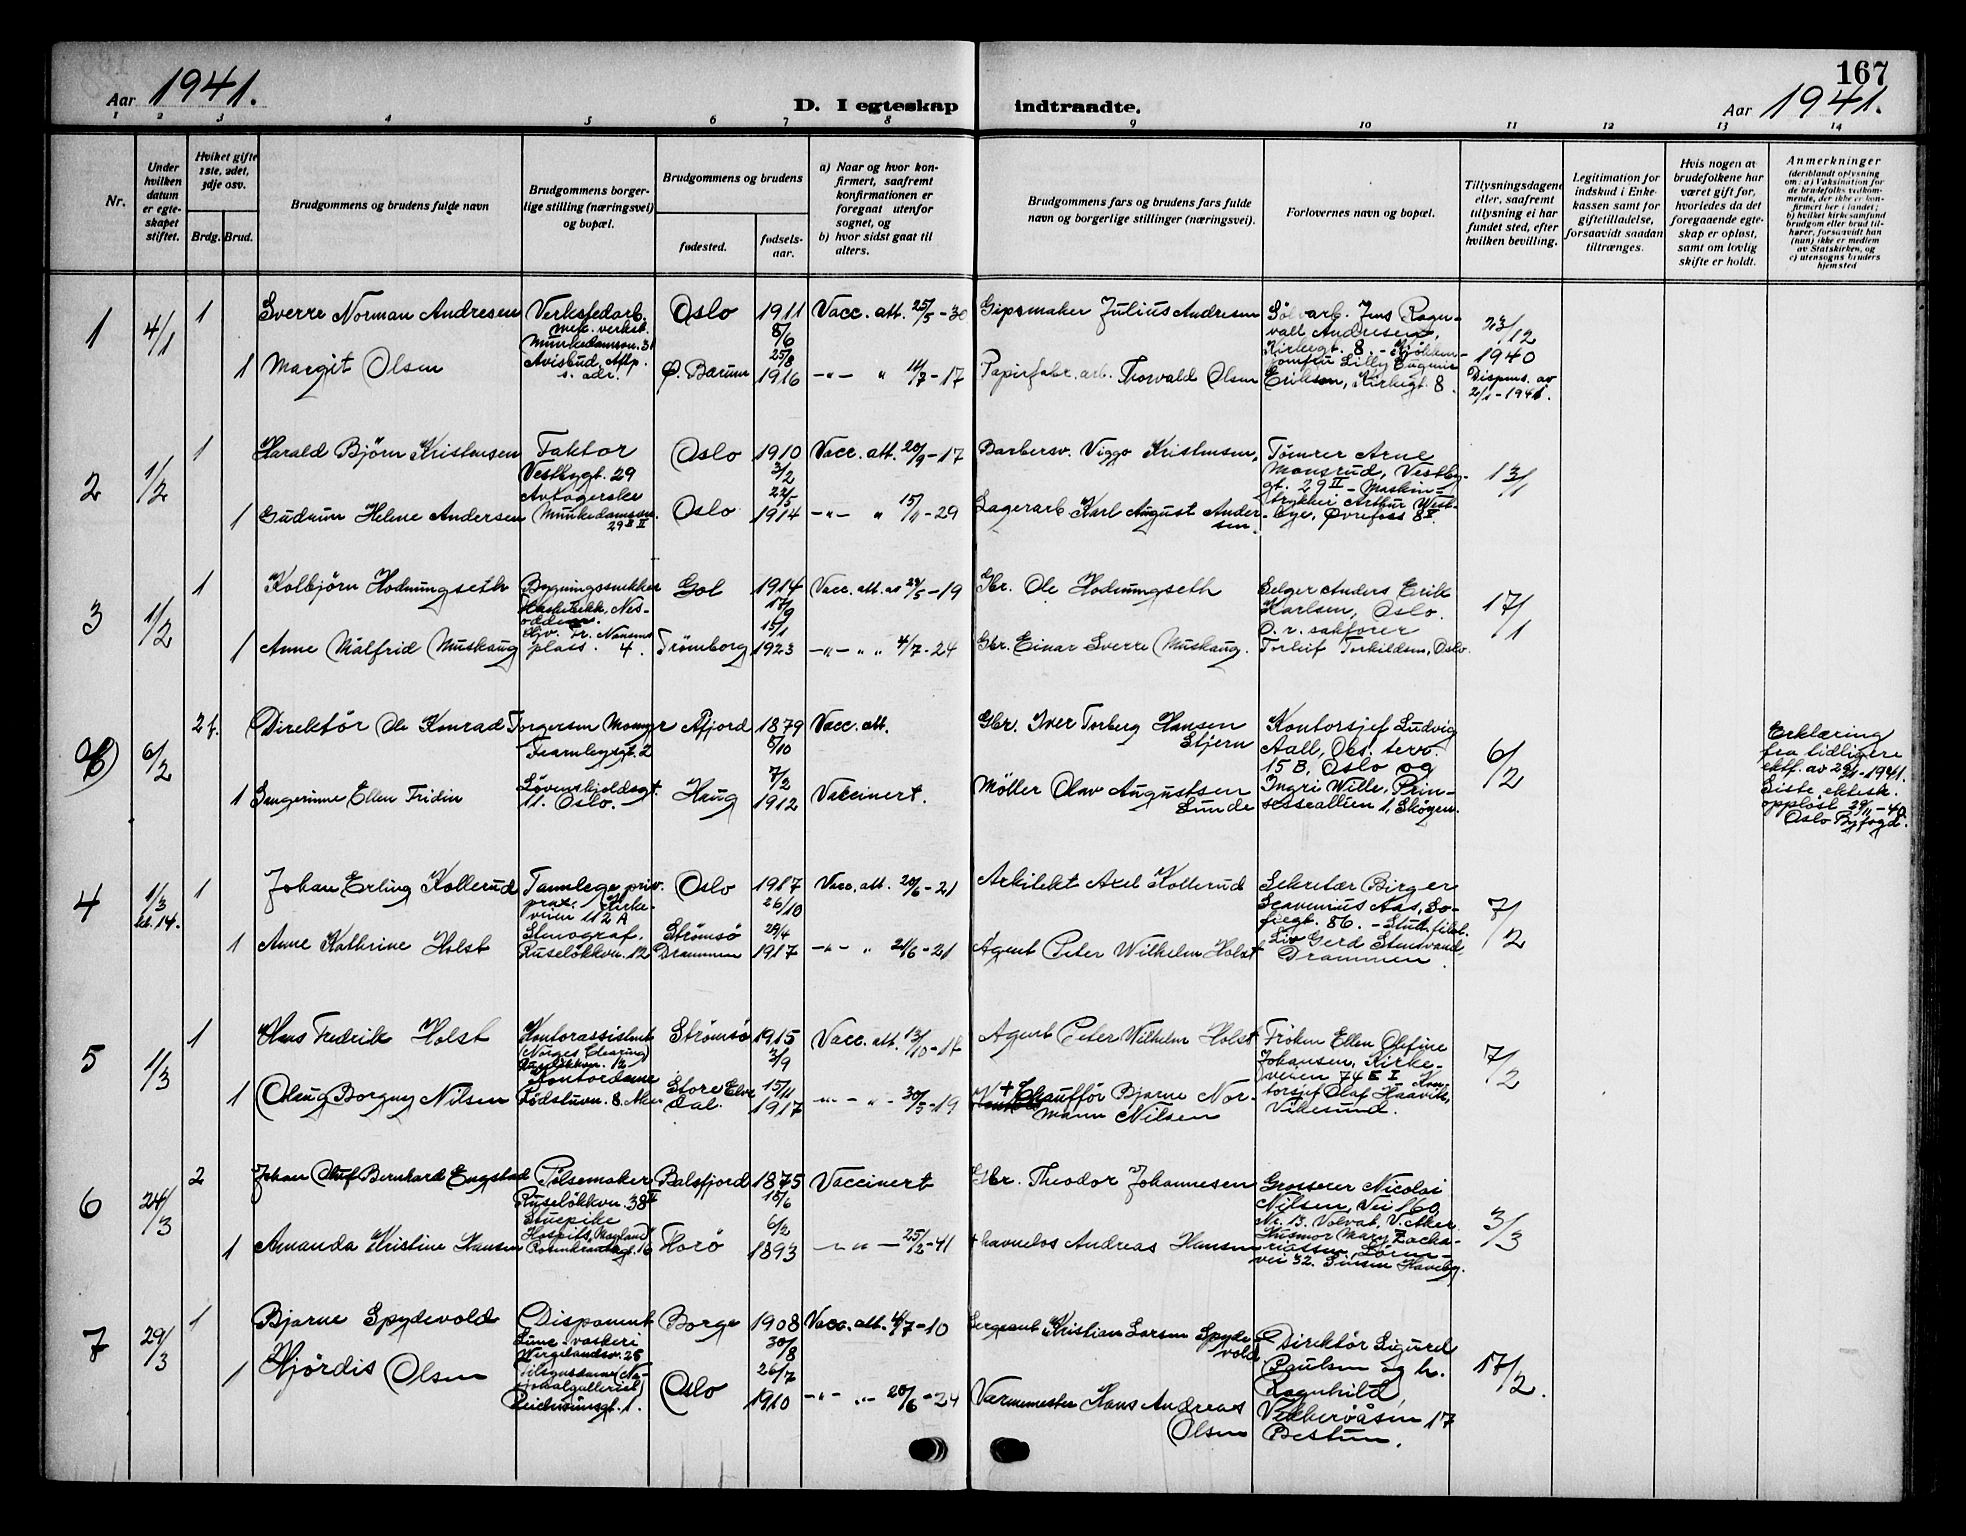 Aar 1941. D. I egteskap indtraadte. 167
Aar 1941.
1 2 3 4 5 6 7 8 9 10 11 12 13 14
Nr.
Under hvilken datum er egteskapet stiftet.
Hvilket gifte 1ste, 2det, 3dje osv.
Brdg. Brud.
Brudgommens og brudens fulde navn
Brudgommens borgerlige stilling (næringsvei) og bopæl.
Brudgommens og brudens
fødested.
fødselsaar.
a) Naar og hvor konfirmert, saafremt konfirmationen er foregaat utenfor sognet, og
b) hvor sidst gaat til alters.
Brudgommens fars og brudens fars fulde navn og borgerlige stillinger (næringsvei).
Forlovernes navn og bopæl.
Tillysningsdagene eller, saafremt tillysning ei har fundet sted, efter hvilken bevilling.
Legitimation for indskud i Enkekassen samt for giftetilladelse, forsaavidt saadan tiltrænges.
Hvis nogen av brudefolkene har været gift før, hvorledes da det foregaaende egteskap er opløst, samt om lovlig skifte er holdt.
Anmerkninger
(deriblandt oplysning om: a) Vaksination for de brudefolks vedkommende, der ikke er konfirmert her i landet; b) hvilket kirkesamfund brudgom eller brud tilhører, forsaavidt han (hun) ikke er medlem av Statskirken, og c) utensogns bruders hjemsted
1 4/1 1 Sverre Norman Andresen Verkstedarb. mek. verkst. Munkedamsvn. 31 Oslo 1911 8/6 Vacc. att. 25/5-30 Gipsmaker Julius Andresen Sølvarb. Jens Ragnvall Andresen, Kirkegt. 8. - Kjøkkenjomfru Lilly Eugenie Eriksen, Kirkegt. 8. 23/12 1940 Dispens. av 2/1-1941.
1 Margit Olsen Avisbud, Aftp. s. adr. Ø. Bærum 25/8 1916 -"- " 14/7-17 Papirfabr. arb. Thorvald Olsen
2 1/2 1 Harald Bjørn Kristensen Faktor Vestbygt. 29 Oslo 1910 3/2 Vacc. att. 20/9-17 Barbersv. Viggo Kristensen, Tømrer Arne Monsrud, Vestbygt. 29 II - Maskintrykker Arthur Westbye, Øvrefoss 8 13/1
1 Gudrun Helene Andersen Avtagerske Munkedamsvn. 29 II Oslo 22/5 1914 -"- " 15/11-29 Lagerarb. Karl August Andersen.
3 1/2 1 Kolbjørn Hodnungseth Bygningssnekker Nesodden. Gol 1914 17/9 Vacc. att. av 24/5-19 Gbr. Ole Hodnungseth Selger Anders Erik Karlsen, Oslo. O. r. sakfører Torleif Torkildsen, Oslo. 17/1
1 Anne Målfrid Muskaug Fr. Nansens plass. 4. Trømborg 15/1 1923 -"- " " 4/7-24 Gbr. Einar Sverre Muskaug.
6/2 2 g. Direktør Ole Konrad Torgersen Fearnleysgt. 2 Åfjord 1879 8/10 Vacc. att. Gbr. Iver Torberg Hansen Stjern Kontorsjef Ludvig Aall, Obs. terr. 15 B, Oslo og Ingri Wille, Prinsessealléen 1, Skøyen. 6/2 Erklæring fra tidligere ektf. av 29/1-1941. Siste ektesk. oppløst 29/11-40 Oslo Byfogd.
1 Sangerinne Ellen Fridin Løvenskioldsgt. 11. Oslo. Haug 7/2 1912 Vaccinert. Møller Olav Augustsen Lunde
4 1/3 kl. 14. 1 Johan Erling Kollerud Tannlege priv. prax. Kirkeveien 112 A Oslo 1917 26/10 Vacc. att. 20/6-21 Arkitekt Axel Kollerud Sekretær Birger Scavenius Aas, Sofiegt. 86. - Stud. filol. Liv Gerd Stensvand, Drammen. 7/2
1 Anne Kathrine Holst Stenograf. Ruseløkkvn. 12 Strømsø Drammen 29/4 1917 -"- " 21/6-21 Agent Peter Wilhelm Holst
5 1/3 1 Hans Fredrik Holst Kontorassistent (Norges Clearing) Ruseløkkvn. 12 Strømsø 1915 3/9 Vacc. att. 13/10-18 Agent Peter Wilhelm Holst Frøken Ellen Olefine Johansen, Kirkeveien 74 E I Kontorsjef Olaf Haavik, Vikersund. 7/2
1 Olaug Borgny Nilsen Kontordame Tødstuvn. 8. Aker Store Elvdal. 15/11 1917 -"- " - 30/5-19 + Chauffør Bjarne Normann Nilsen
6 24/3 2 Johan Oluf Bernhard Engstad Pølsemaker, Ruseløkkvn. 38 II Balsfjord 1875 18/6 Vaccinert Gbr. Theodor Johannesen Grosserer Nicolai Nilsen, Vei 160 Nr. 13. Volvat, V. Aker. Husmor Mary Zachariassen, Lørenvei 32. Sinsen Haveby. 3/3
1 Amanda Kristine Hansen Stuepike Hospits, Rosenkrantzgt. 16 Florø 6/2 1893 -"- 25/2-41 + havnelos Andreas Hansen
7 29/3 1 Bjarne Spydevold Disponent Lune vaskeri Wergelandsv. 25 Borge 1908 30/8 Vacc. att. 4/7-10 Sergeant Kristian Larsen Spydevold Direktør Sigurd Paulsen og h. Ragnhild, Vekkerøåsen 17 Bestun. 17/2.
1 Hjørdis Olsen Tilsynsdame (Nasjonalgalleriet) Oslo 26/7 1910 -"- " - 20/6-24 Varmemester Hans Andreas Olsen